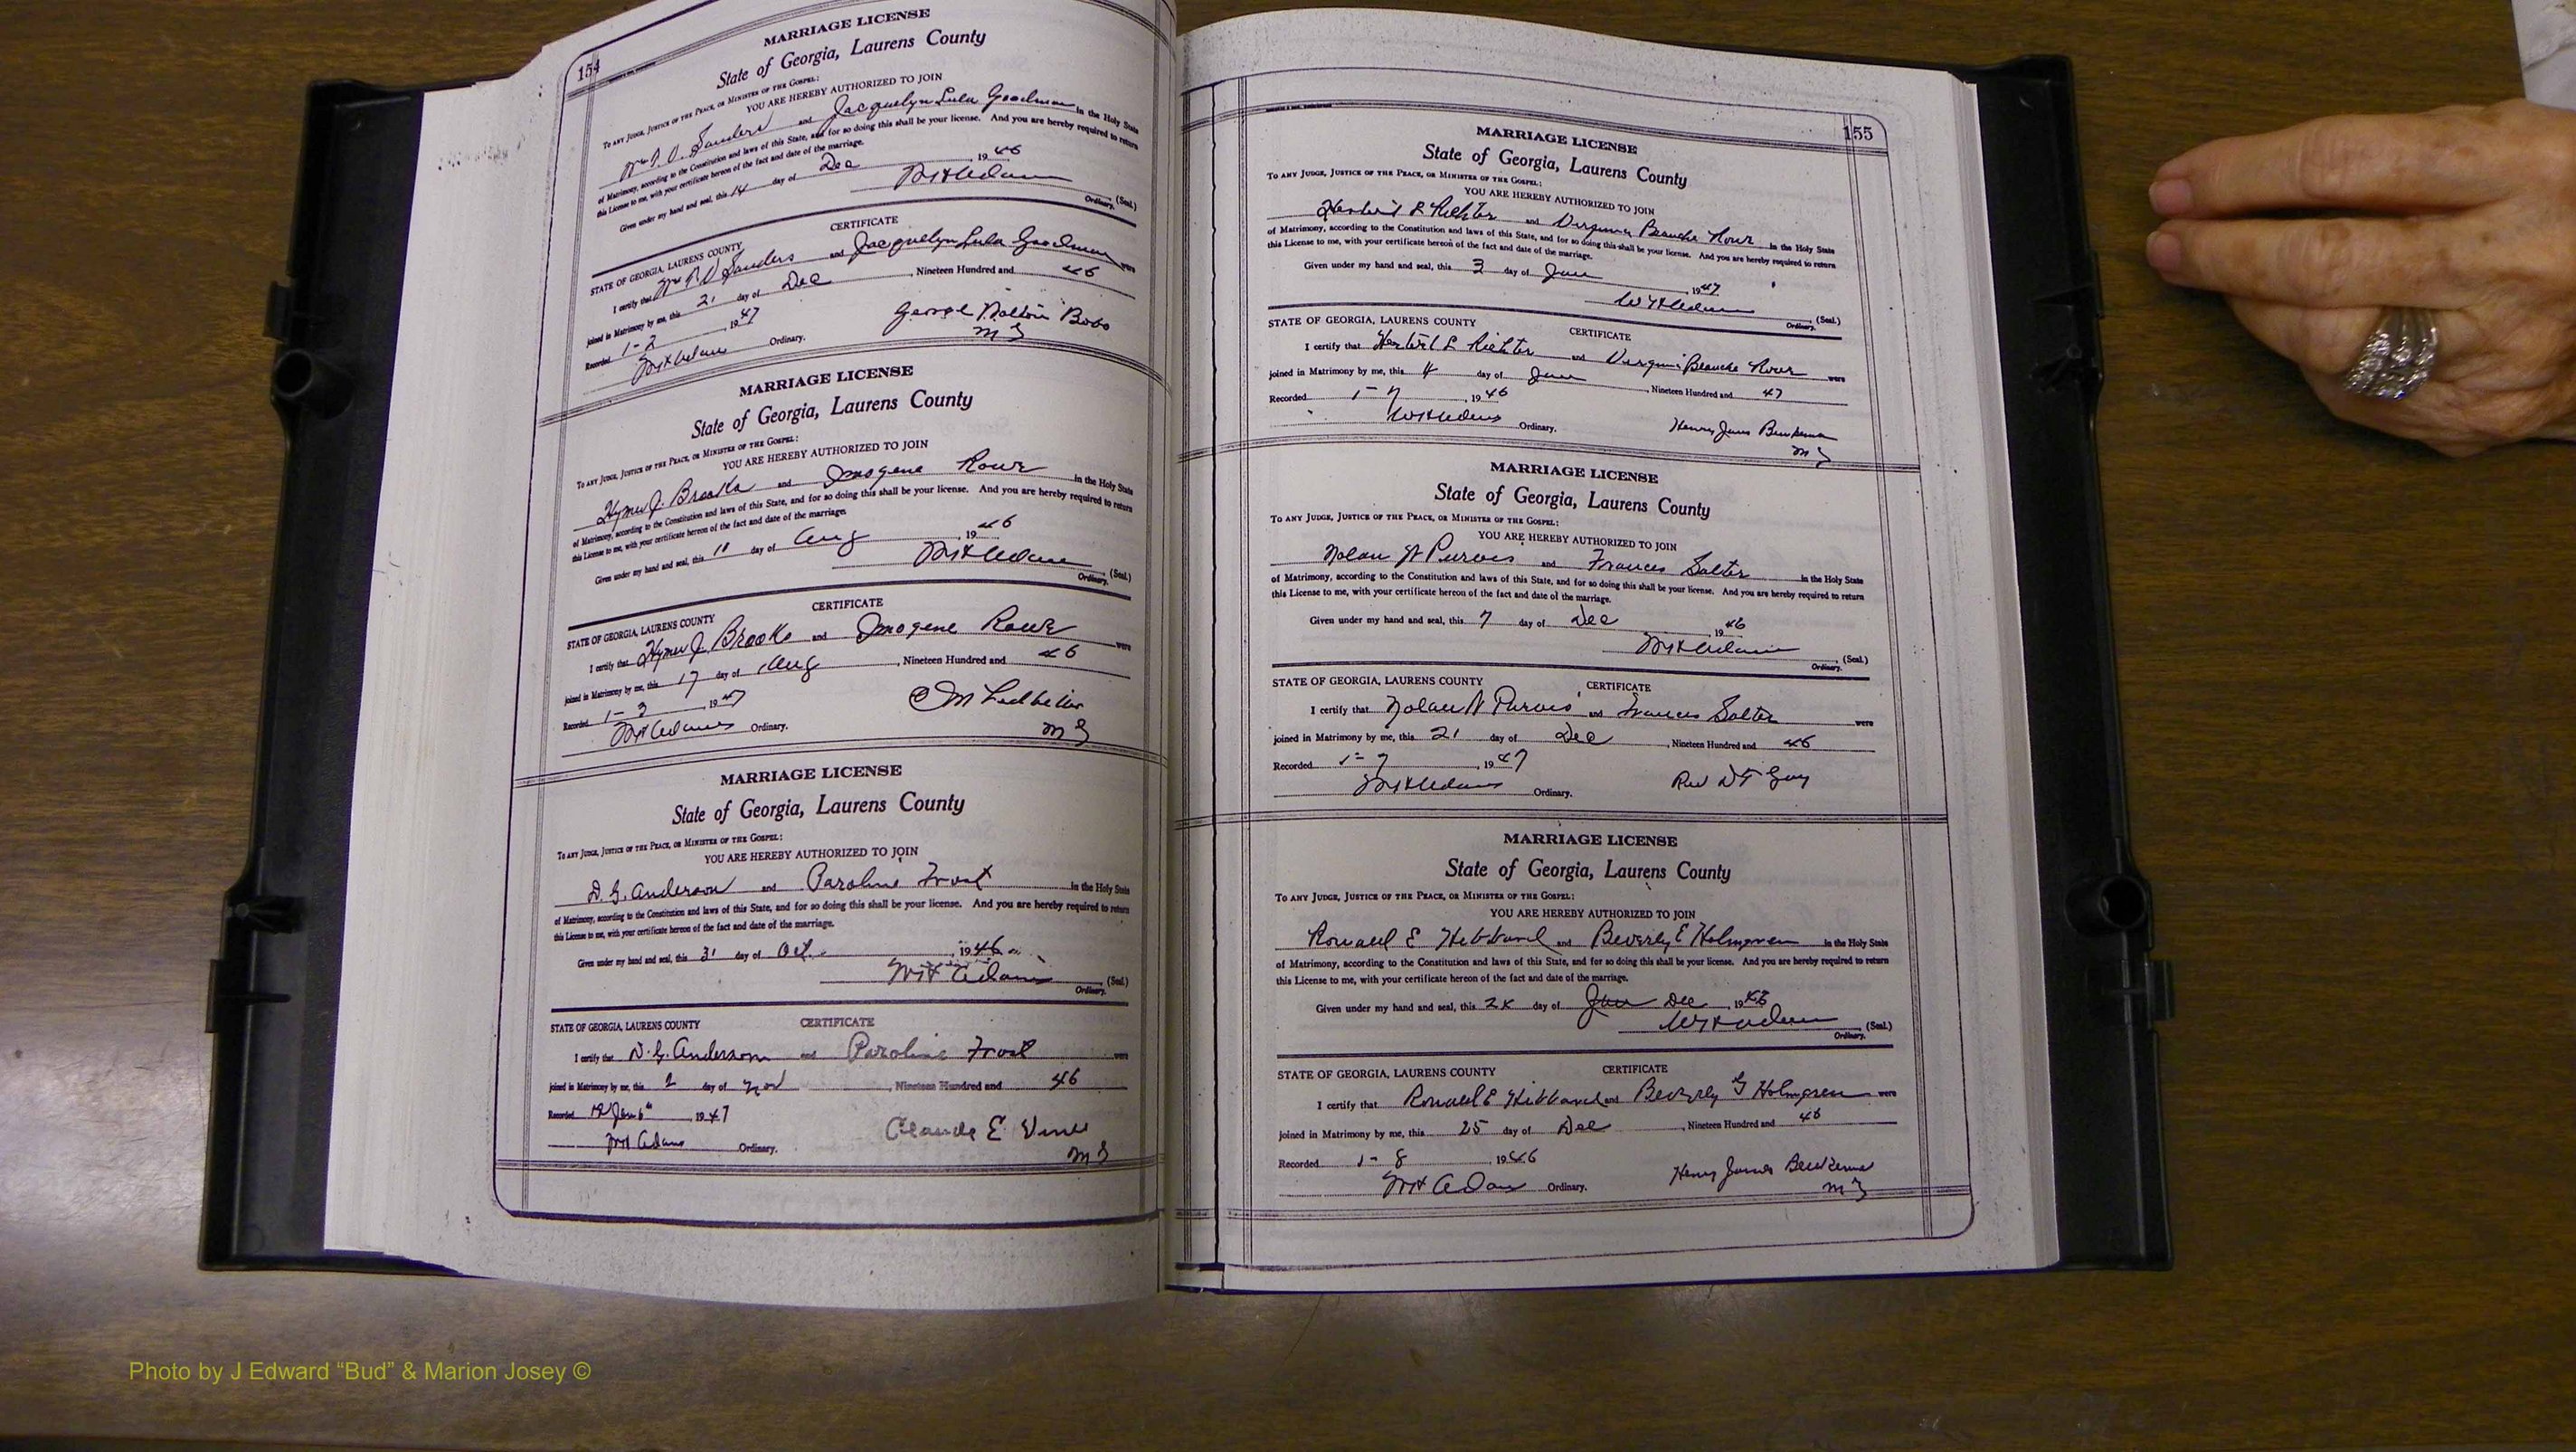 154
MARRIAGE LICENSE
State of Georgia, Laurens County
To any Judge, Justice of the Peace, or Minister of the Gospel:
YOU ARE HEREBY AUTHORIZED TO JOIN
Sanders and Jacquelyn Lula Goodman in the Holy State
of Matrimony, according to the Constitution and laws of this State, and for so doing this shall be your license. And you are hereby required to return
this License to me, with your certificate hereon of the fact and date of the marriage.
Given under my hand and seal, this 14 day of Dec, 1946
Wm H Adams (Seal)
Ordinary.
CERTIFICATE
STATE OF GEORGIA, LAURENS COUNTY
I certify that Sanders and Jacquelyn Lula Goodman were
joined in Matrimony by me, this 21 day of Dec, Nineteen Hundred and 46
Recorded 1-2, 1947
Wm H Adams Ordinary.
George Bobo
M G
MARRIAGE LICENSE
State of Georgia, Laurens County
To any Judge, Justice of the Peace, or Minister of the Gospel:
YOU ARE HEREBY AUTHORIZED TO JOIN
J. Brooks and Imogene Rowe in the Holy State
of Matrimony, according to the Constitution and laws of this State, and for so doing this shall be your license. And you are hereby required to return
this License to me, with your certificate hereon of the fact and date of the marriage.
Given under my hand and seal, this day of Aug, 1946
Wm H Adams (Seal)
Ordinary.
CERTIFICATE
STATE OF GEORGIA, LAURENS COUNTY
I certify that J. Brooks and Imogene Rowe were
joined in Matrimony by me, this 17 day of Aug, Nineteen Hundred and 46
Recorded 1-3, 1947
Wm H Adams Ordinary.
C M Ledbetter
M G
MARRIAGE LICENSE
State of Georgia, Laurens County
To any Judge, Justice of the Peace, or Minister of the Gospel:
YOU ARE HEREBY AUTHORIZED TO JOIN
D. G. Anderson and Paroline Frost in the Holy State
of Matrimony, according to the Constitution and laws of this State, and for so doing this shall be your license. And you are hereby required to return
this License to me, with your certificate hereon of the fact and date of the marriage.
Given under my hand and seal, this 31 day of Oct., 1946
Wm H Adams (Seal)
Ordinary.
STATE OF GEORGIA, LAURENS COUNTY CERTIFICATE
I certify that D. G. Anderson and Paroline Frost were
joined in Matrimony by me, this 2 day of Nov, Nineteen Hundred and 46
Recorded Jan 6th, 1947
Wm H Adams Ordinary.
Claude E Vines
M G
155
MARRIAGE LICENSE
State of Georgia, Laurens County
To any Judge, Justice of the Peace, or Minister of the Gospel:
YOU ARE HEREBY AUTHORIZED TO JOIN
Herbert L Richter and Virginia Blanche in the Holy State
of Matrimony, according to the Constitution and laws of this State, and for so doing this shall be your license. And you are hereby required to return
this License to me, with your certificate hereon of the fact and date of the marriage.
Given under my hand and seal, this 3 day of Jan
1947
Wm H Adams (Seal)
Ordinary.
STATE OF GEORGIA, LAURENS COUNTY CERTIFICATE
I certify that Herbert L Richter and Virginia Blanche were
joined in Matrimony by me, this 4 day of Jan, Nineteen Hundred and 47
Recorded 1-7, 1946
Wm H Adams Ordinary.
Henry James Beukema
M G
MARRIAGE LICENSE
State of Georgia, Laurens County
To any Judge, Justice of the Peace, or Minister of the Gospel:
YOU ARE HEREBY AUTHORIZED TO JOIN
Nolan N Purvis and Frances Salter in the Holy State
of Matrimony, according to the Constitution and laws of this State, and for so doing this shall be your license. And you are hereby required to return
this License to me, with your certificate hereon of the fact and date of the marriage.
Given under my hand and seal, this 7 day of Dec 1946
Wm H Adams (Seal)
Ordinary.
STATE OF GEORGIA, LAURENS COUNTY CERTIFICATE
I certify that Nolan N Purvis and Frances Salter were
joined in Matrimony by me, this 21 day of Dec, Nineteen Hundred and 46
Recorded 1-7, 1947
Wm H Adams Ordinary.
Rev D T Guy
MARRIAGE LICENSE
State of Georgia, Laurens County
To any Judge, Justice of the Peace, or Minister of the Gospel:
YOU ARE HEREBY AUTHORIZED TO JOIN
Ronald E Hibbard and Beverly E Holmgren in the Holy State
of Matrimony, according to the Constitution and laws of this State, and for so doing this shall be your license. And you are hereby required to return
this License to me, with your certificate hereon of the fact and date of the marriage.
Given under my hand and seal, this 24 day of Jan Dec, 1946
Wm H Adams (Seal)
Ordinary.
STATE OF GEORGIA, LAURENS COUNTY CERTIFICATE
I certify that Ronald E Hibbard and Beverly G Holmgren were
joined in Matrimony by me, this 25 day of Dec, Nineteen Hundred and 46
Recorded 1-8, 1946
Wm H Adams Ordinary.
Henry James Beukema
M G
Photo by J Edward “Bud” & Marion Josey ©